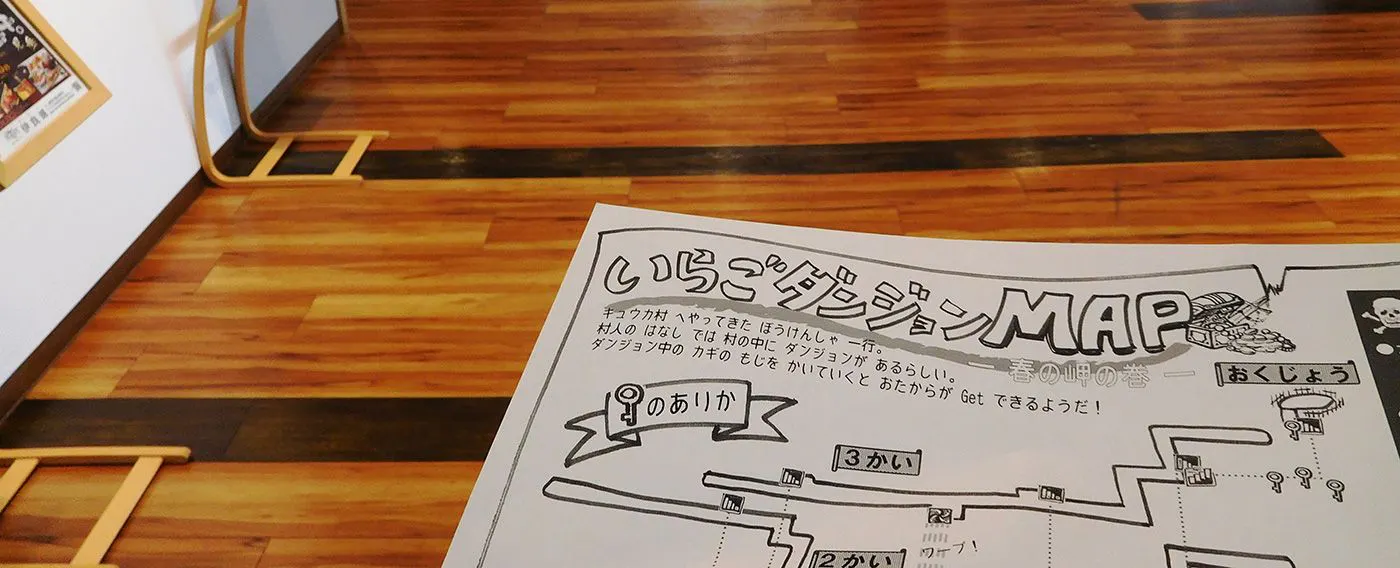 いらごダンジョンMAP
キュウカ村 へやってきた ぼうけんしゃ 一行。
村人の はなし では 村の中に ダンジョンが あるらしい。
ダンジョン中の カギの もじを かいていくと おたからが Get できるようだ！
― 春の岬の巻 ―
おくじょう
のありか
3かい
ワープ！
2かい